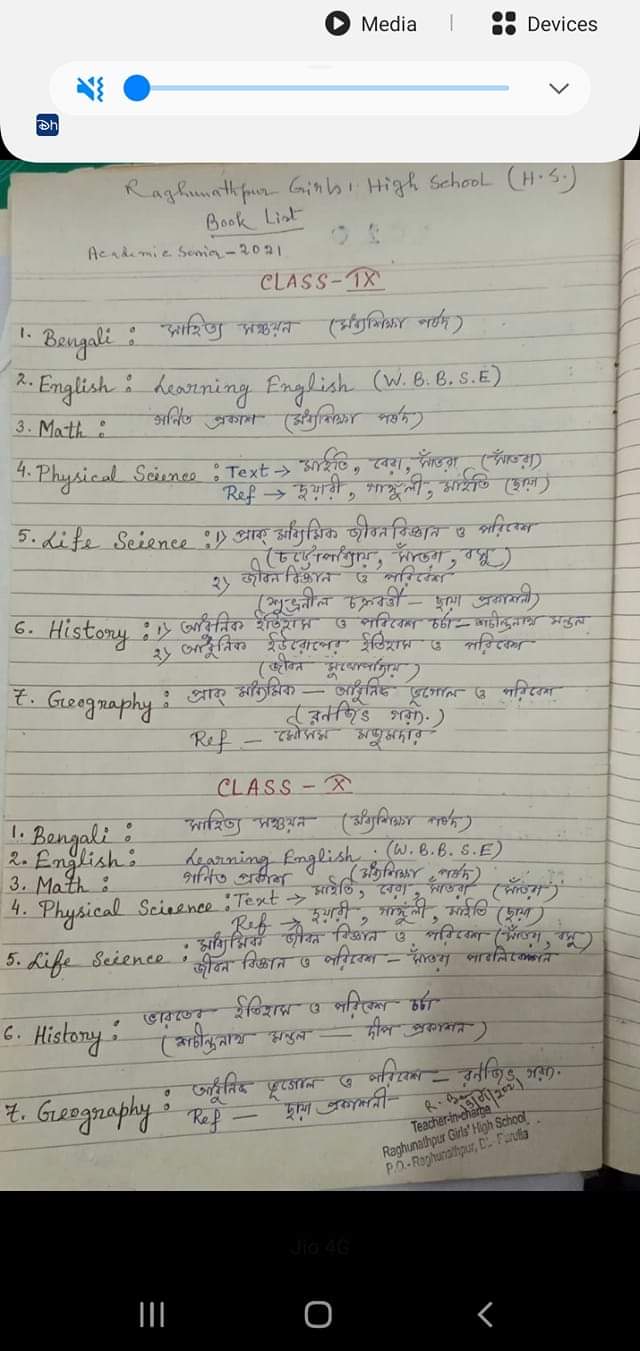 Media | Devices
Raghunathpur Girls' High School (H.S.)
Book List
Academic Session - 2021
CLASS - IX
1. Bengali : সাহিত্য সঞ্চয়ন (মধ্যশিক্ষা পর্ষদ)
2. English : Learning English (W.B.B.S.E)
3. Math : গণিত প্রকাশ (মধ্যশিক্ষা পর্ষদ)
4. Physical Science : Text → মাইতি, বেরা, সাঁতরা (সাঁতরা)
Ref → দুয়ারী, গাঙ্গুলী, মাইতি (ছায়া)
5. Life Science : ১) প্রাক্ মাধ্যমিক জীবন বিজ্ঞান ও পরিবেশ
(চট্টোপাধ্যায়, সাঁতরা, বসু)
২) জীবন বিজ্ঞান ও পরিবেশ
(শুভ্রনীল চক্রবর্তী - ছায়া প্রকাশনী)
6. History : ১) আধুনিক ইতিহাস ও পরিবেশ চর্চা - শচীন্দ্রনাথ মন্ডল
২) আধুনিক ইউরোপের ইতিহাস ও পরিবেশ
(জীবন মুখোপাধ্যায়)
7. Geography : প্রাক্ মাধ্যমিক - আধুনিক ভূগোল ও পরিবেশ
(রনজিৎ গরাং.)
Ref - মৌসম মজুমদার
CLASS - X
1. Bengali : সাহিত্য সঞ্চয়ন (মধ্যশিক্ষা পর্ষদ)
2. English : Learning English. (W.B.B.S.E)
3. Math : গণিত প্রকাশ (মধ্যশিক্ষা পর্ষদ)
4. Physical Science : Text → মাইতি, বেরা, সাঁতরা (সাঁতরা)
Ref → দুয়ারী, গাঙ্গুলী, মাইতি (ছায়া)
5. Life Science : মাধ্যমিক জীবন বিজ্ঞান ও পরিবেশ (সাঁতরা, বসু)
জীবন বিজ্ঞান ও পরিবেশ - সাঁতরা পাবলিকেশন
6. History : ভারতের ইতিহাস ও পরিবেশ চর্চা
(শচীন্দ্রনাথ মন্ডল - দীপ প্রকাশন)
7. Geography : আধুনিক ভূগোল ও পরিবেশ - রনজিৎ গরাং.
Ref - ছায়া প্রকাশনী
Teacher-in-charge
Raghunathpur Girls' High School
P.O.-Raghunathpur, Dt. Purulia
Jio 4G